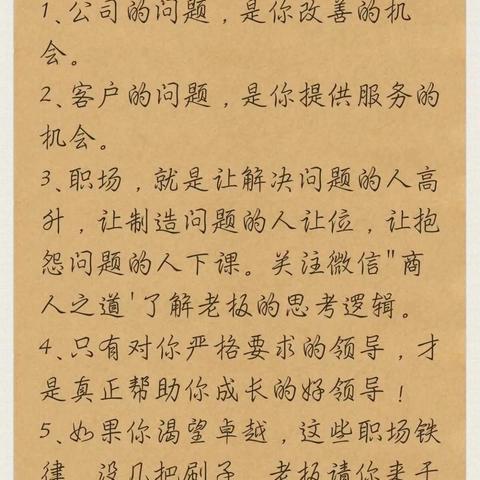 1、公司的问题，是你改善的机
会。
2、客户的问题，是你提供服务的
机会。
3、职场，就是让解决问题的人高
升，让制造问题的人让位，让抱
怨问题的人下课。关注微信"商
人之道'了解老板的思考逻辑。
4、只有对你严格要求的领导，才
是真正帮助你成长的好领导！
5、如果你渴望卓越，这些职场铁
律，没几把刷子，老板请你来干